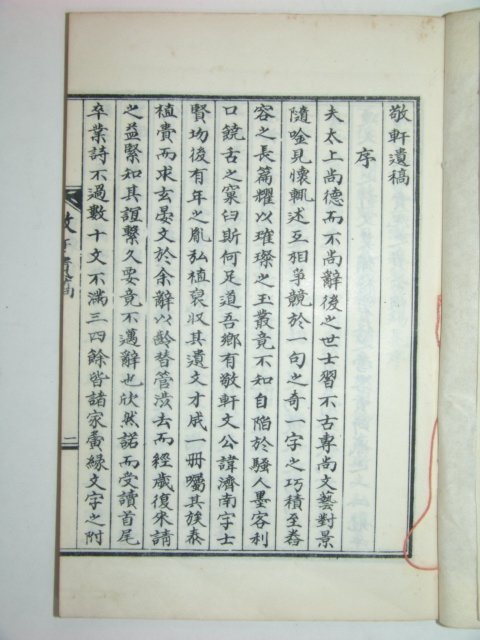 敬軒遺稿
序
夫太上尚德而不尚辭後之世士習不古專尚文藝對景
隨唫見懷輒述互相爭競於一句之奇一字之巧積至卷
容之長篇耀以璀璨之玉叢竟不知自陷於騷人墨客利
口饒舌之窠臼斯何足道吾鄉有敬軒文公諱濟南字士
賢功後有年之胤弘植裒收其遺文才成一冊囑其族泰
植賫而求玄晏文於余辭以齡替管潑去而經歲復來請
之益緊知其誼繫久要竟不邁辭也欣然諾而受讀首尾
卒業詩不過數十文不滿三四餘皆諸家夤緣文字之附
敬軒遺稿
二